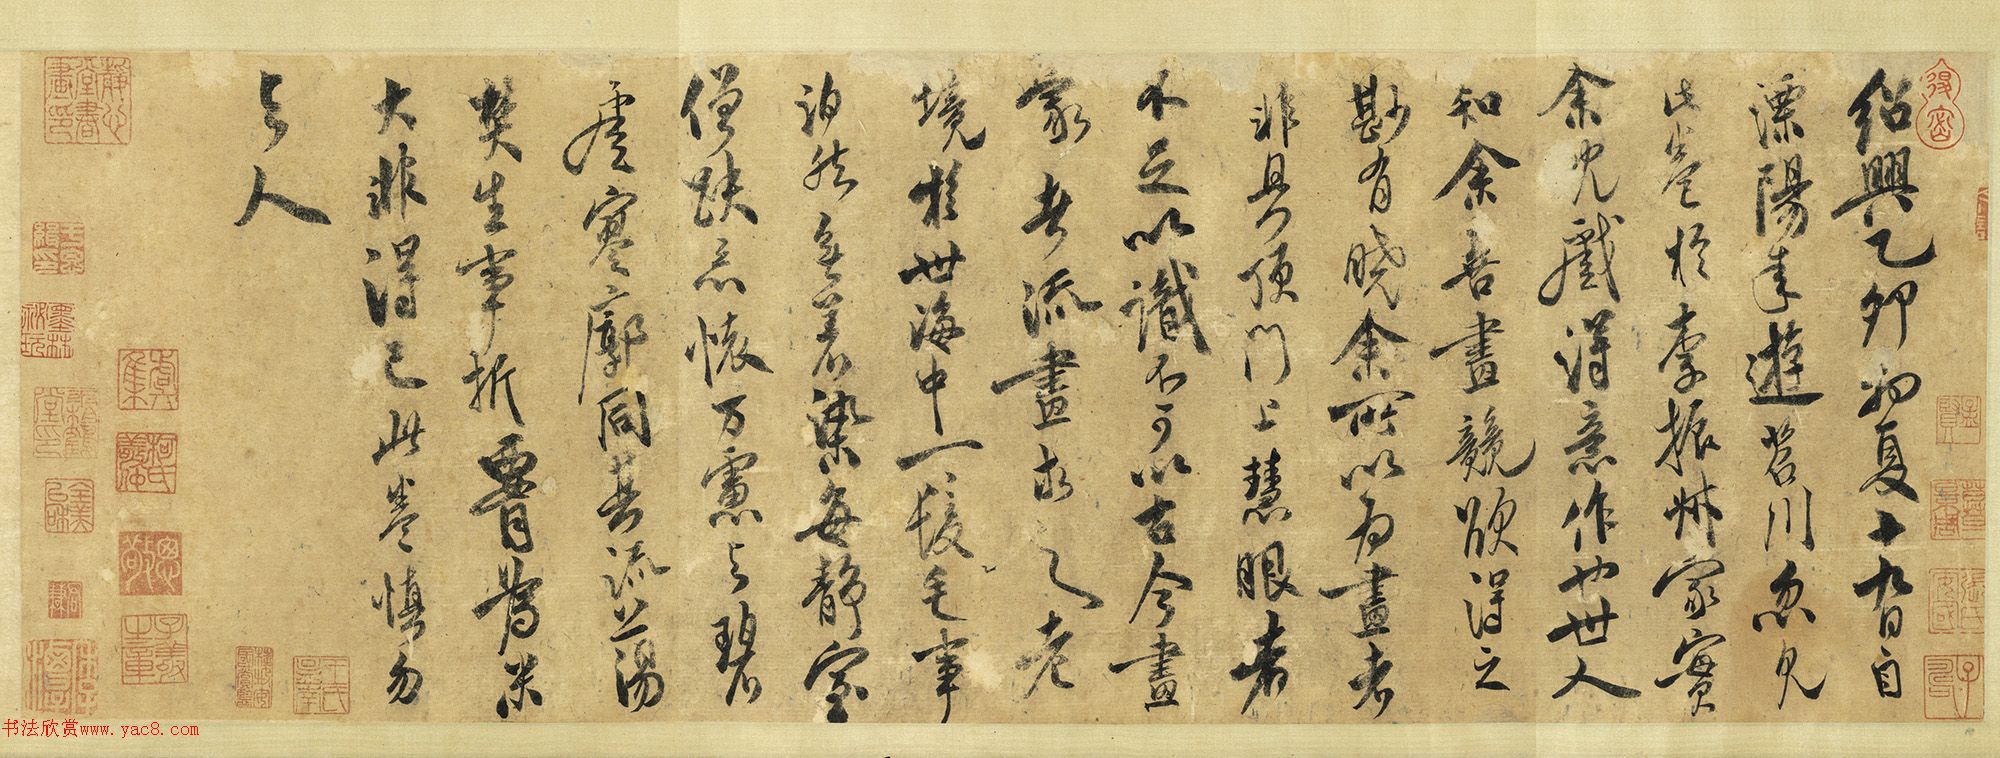 紹興乙卯初夏十九日自
溧陽來遊苕川忽見
此卷於李振叔家實
余兒戲得意作也世人
知余善畫競欲得之
尠有曉余所以為畫者
非具頂門上慧眼者
不足以識不可以古今畫
家者流畫求之老
境於世海中一毛髮事
泊然無着染每靜室
僧趺忘懷万慮与碧
虛寥廓同其流蕩
焚生事折腰為米
大非得已此卷慎勿
与人
书法欣赏www.yac8.com